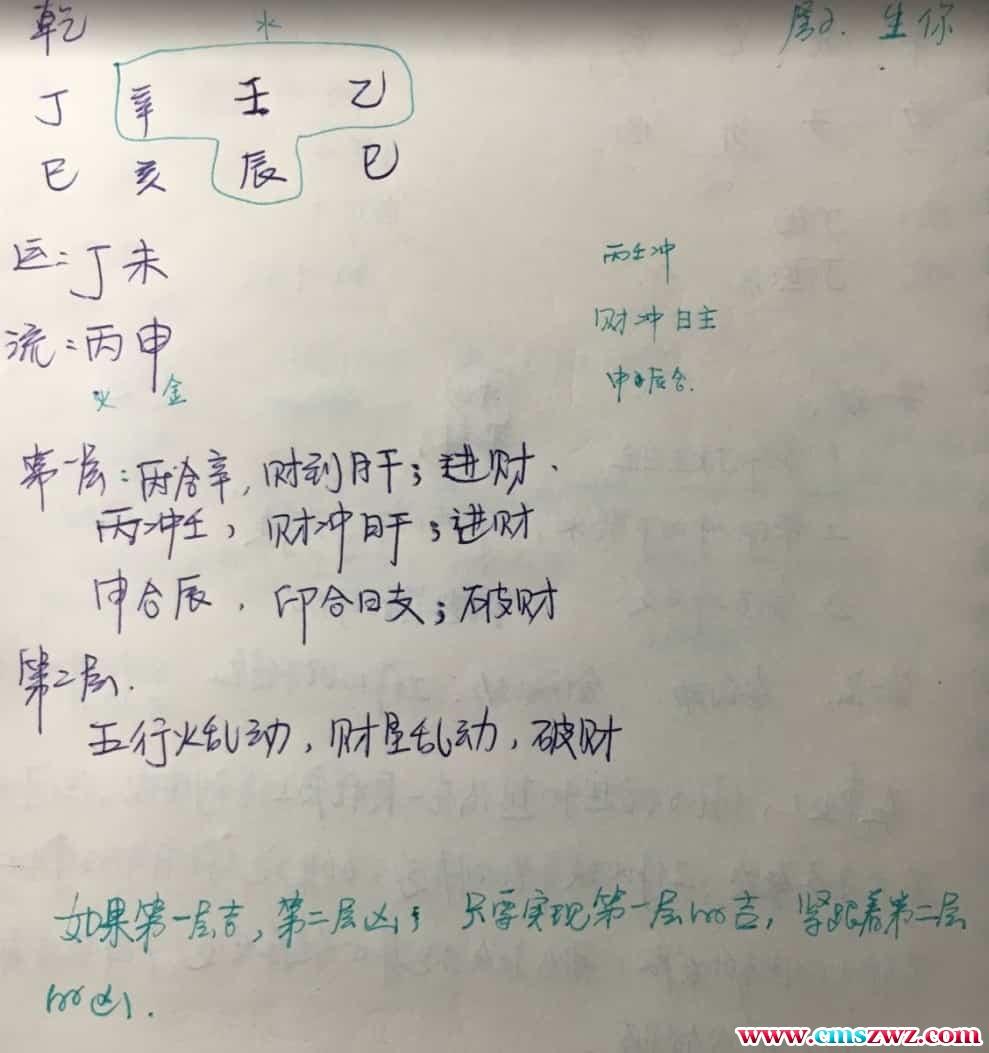 乾 水 层2. 生你
丁 辛 壬 乙
巳 亥 辰 巳
运:丁未
流:丙申
火 金
丙壬冲
财冲日主
申辰合.
第一层:丙合辛,财到月干;进财.
丙冲壬,财冲日干;进财
申合辰,印合日支;破财
第二层.
五行火乱动,财星乱动,破财
如果第一层吉,第二层凶; 只要实现第一层的吉,紧跟着第二层
的凶.
www.cmszwz.com